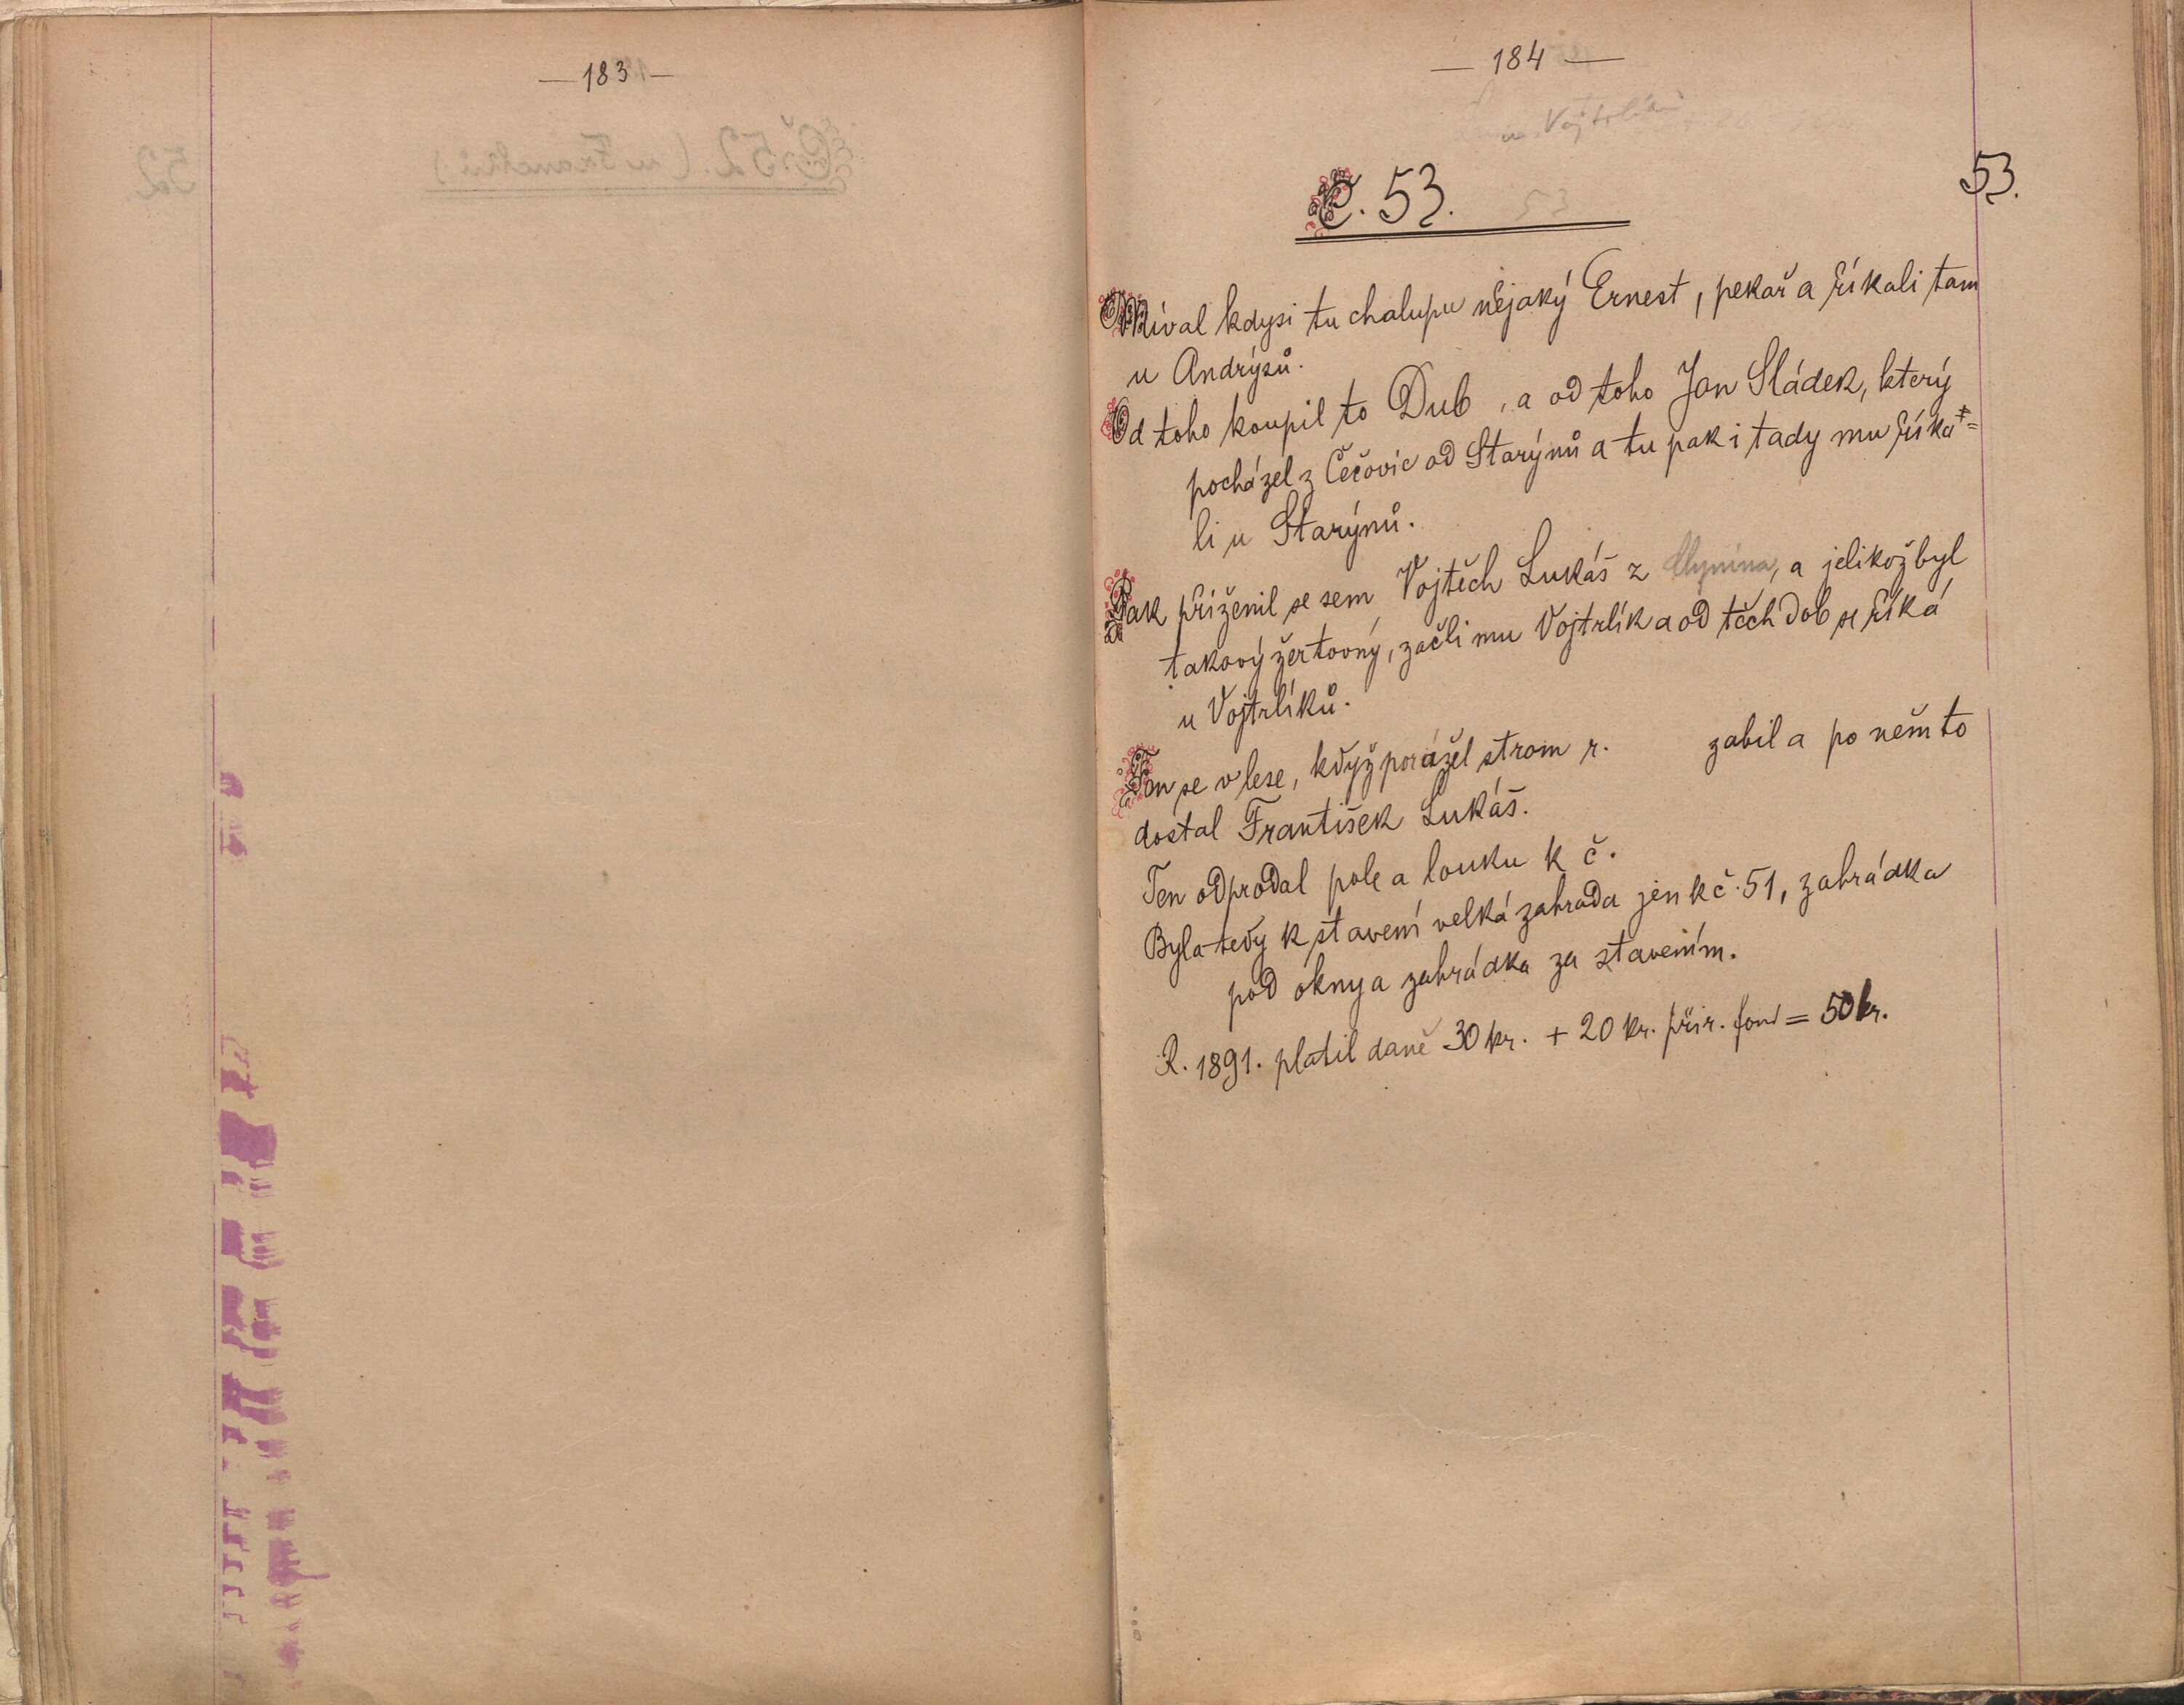 — 183 —
— 184 —
u Vojtrlíků
Č. 53.
53.
Míval kdysi tu chalupu nějaký Ernest, pekař a říkali tam
u Andrýsů.
Od toho koupil to Dub, a od toho Jan Sládek, který
pocházel z Čečovic od Starýnů a tu pak i tady mu říka=
li u Starýnů.
Pak přiženil se sem Vojtěch Lukáš z , a jelikož byl
takový žertovný, začli mu Vojtrlík a od těch dob se říká
u Vojtrlíků.
Ten se v lese, když porážel strom r. zabil a po něm to
dostal František Lukáš.
Ten odprodal pole a louku k č.
Byla tedy k stavení velká zahrada jen k č. 51, zahrádka
pod okny a zahrádka za stavením.
R. 1891. platil daně 30 kr. + 20 kr. přir. fond = 50 kr.